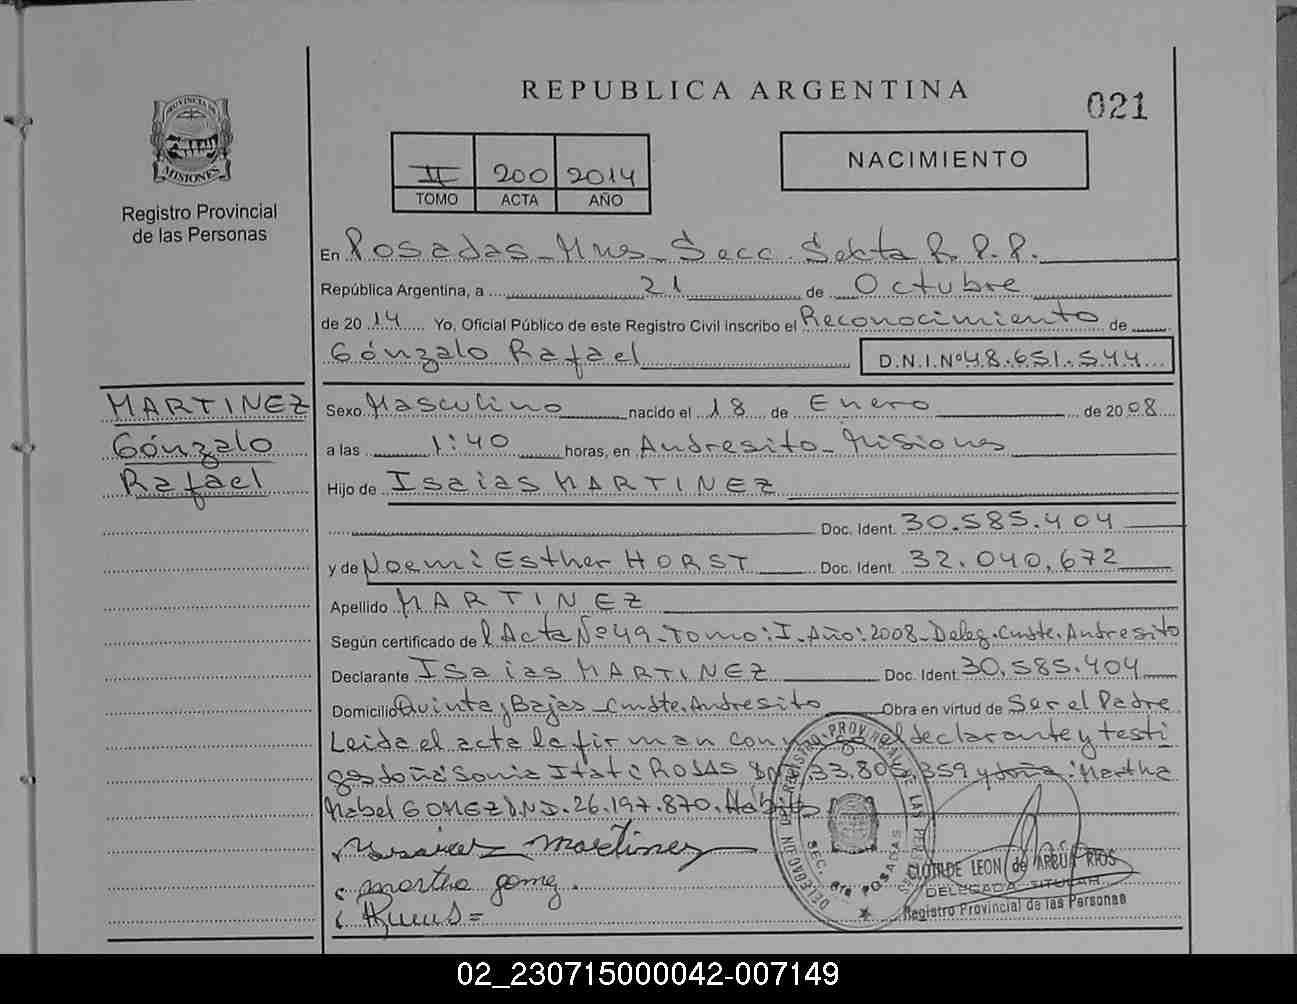 REPUBLICA ARGENTINA
021
PROVINCIA DE
MISIONES
Registro Provincial
de las Personas
II 200 2014
TOMO ACTA AÑO
NACIMIENTO
En Posadas - Mnes - Secc. Sexta R. P. P.
República Argentina, a 21 de Octubre
de 2014 Yo, Oficial Público de este Registro Civil inscribo el Reconocimiento de
Gónzalo Rafael D.N.I. Nº 48.651.544
MARTINEZ
Gónzalo
Rafael
Sexo Masculino nacido el 18 de Enero de 2008
a las 1:40 horas, en Andresito - Misiones
Hijo de Isaias MARTINEZ
Doc. Ident. 30.585.404
y de Noemi Esther HORST Doc. Ident. 32.040.672
Apellido MARTINEZ
Según certificado del Acta Nº 49 - Tomo: I - Año: 2008 - Deleg. Cmdte. Andresito
Declarante Isaias MARTINEZ Doc. Ident. 30.585.404
Domicilio Quinta y Bajas - Cmdte. Andresito Obra en virtud de Ser el Padre
Leida el acta la firman con el declarante y testi
gos doña Sonia Itati ROJAS 33.806.359 y doña: Martha
Mabel GOMEZ D.N.I. 26.197.870.
martinez
martha gomez.
DELEGACION DEL REGISTRO PROVINCIAL DE LAS PERSONAS
SEC. 6ta POSADAS
CLOTILDE LEON de ARBUA RIOS
DELEGADA TITULAR
Registro Provincial de las Personas
02_230715000042-007149